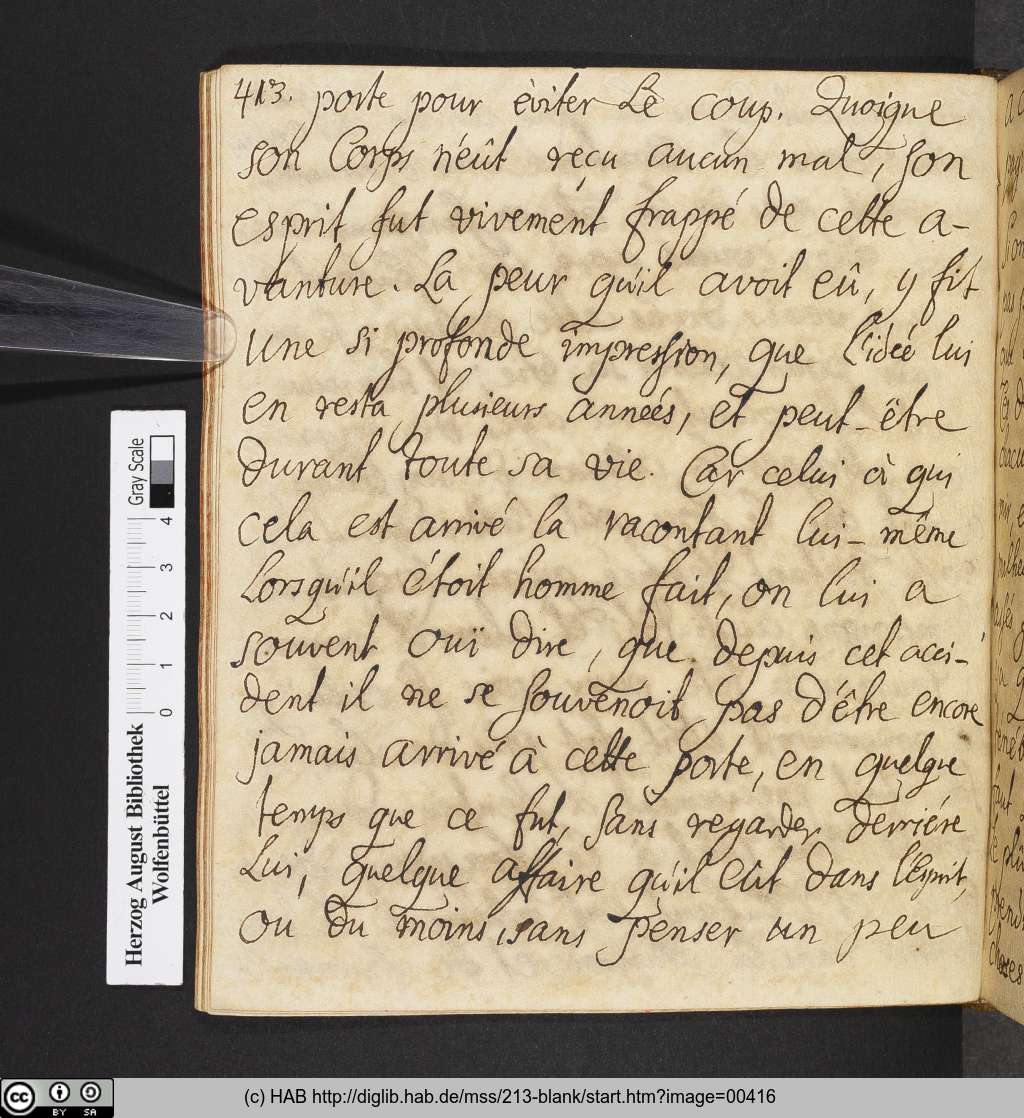 413. porte pour éviter Le coup. Quoique
son Corps n'eût reçu aucun mal, son
esprit fut vivement frappé de cette a-
vanture. La peur qu'il avoit eû, y fit
une si profonde impression, que l'idée lui
en resta plusieurs années, et peut-être
durant toute sa vie. Car celui à qui
cela est arrivé la racontant lui-même
Lorsqu'il étoit homme fait, on lui a
souvent ouï dire, que depuis cet acci-
dent il ne se souvenoit pas d'être encore
jamais arrivé à cette porte, en quelque
temps que ce fut, sans regarder derriére
Lui, quelque affaire qu'il eût dans l'Esprit,
ou du moins, sans penser un peu
Herzog August Bibliothek
Wolfenbüttel
Gray Scale
0 1 2 3 4
cc BY SA
(c) HAB http://diglib.hab.de/mss/213-blank/start.htm?image=00416